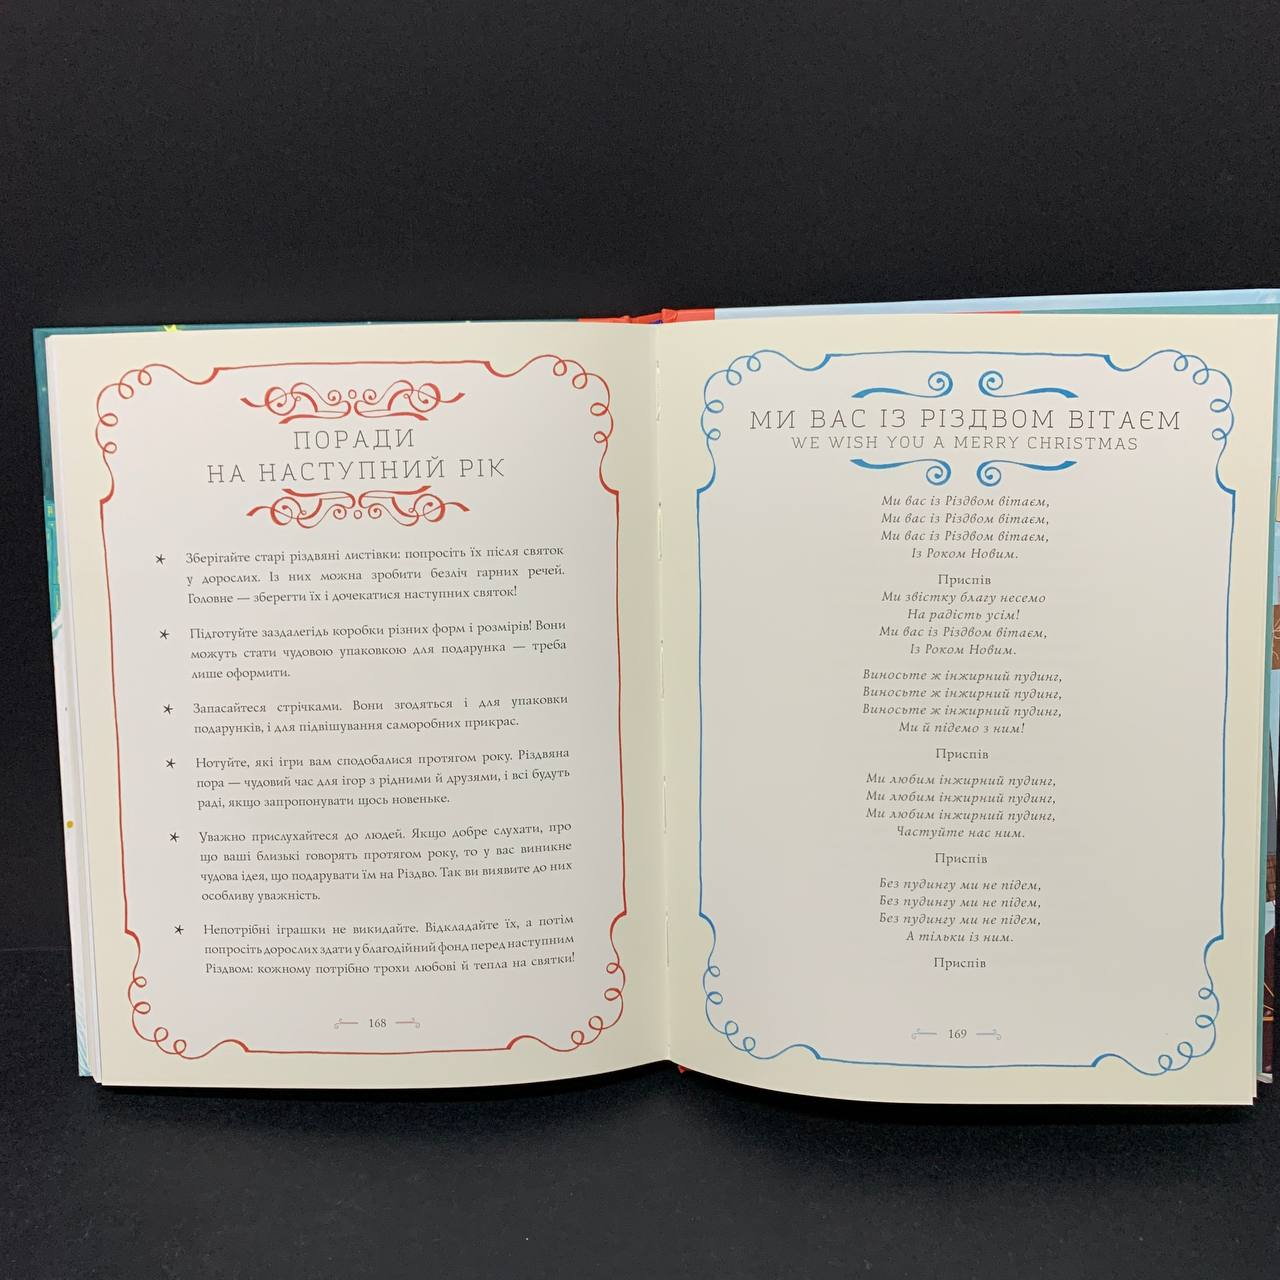 ПОРАДИ
НА НАСТУПНИЙ РІК
Зберігайте старі різдвяні листівки: попросіть їх після святок
у дорослих. Із них можна зробити безліч гарних речей.
Головне — зберегти їх і дочекатися наступних святок!
Підготуйте заздалегідь коробки різних форм і розмірів! Вони
можуть стати чудовою упаковкою для подарунка — треба
лише оформити.
Запасайтеся стрічками. Вони згодяться і для упаковки
подарунків, і для підвішування саморобних прикрас.
Нотуйте, які ігри вам сподобалися протягом року. Різдвяна
пора — чудовий час для ігор з рідними й друзями, і всі будуть
раді, якщо запропонувати щось новеньке.
Уважно прислухайтеся до людей. Якщо добре слухати, про
що ваші близькі говорять протягом року, то у вас виникне
чудова ідея, що подарувати їм на Різдво. Так ви виявите до них
особливу уважність.
Непотрібні іграшки не викидайте. Відкладайте їх, а потім
попросіть дорослих здати у благодійний фонд перед наступним
Різдвом: кожному потрібно трохи любові й тепла на святки!
168
МИ ВАС ІЗ РІЗДВОМ ВІТАЄМ
WE WISH YOU A MERRY CHRISTMAS
Ми вас із Різдвом вітаєм,
Ми вас із Різдвом вітаєм,
Ми вас із Різдвом вітаєм,
Із Роком Новим.
Приспів
Ми звістку благу несемо
На радість усім!
Ми вас із Різдвом вітаєм,
Із Роком Новим.
Виносьте ж інжирний пудинг,
Виносьте ж інжирний пудинг,
Виносьте ж інжирний пудинг,
Ми й підемо з ним!
Приспів
Ми любим інжирний пудинг,
Ми любим інжирний пудинг,
Ми любим інжирний пудинг,
Частуйте нас ним.
Приспів
Без пудингу ми не підем,
Без пудингу ми не підем,
Без пудингу ми не підем,
А тільки із ним.
Приспів
169